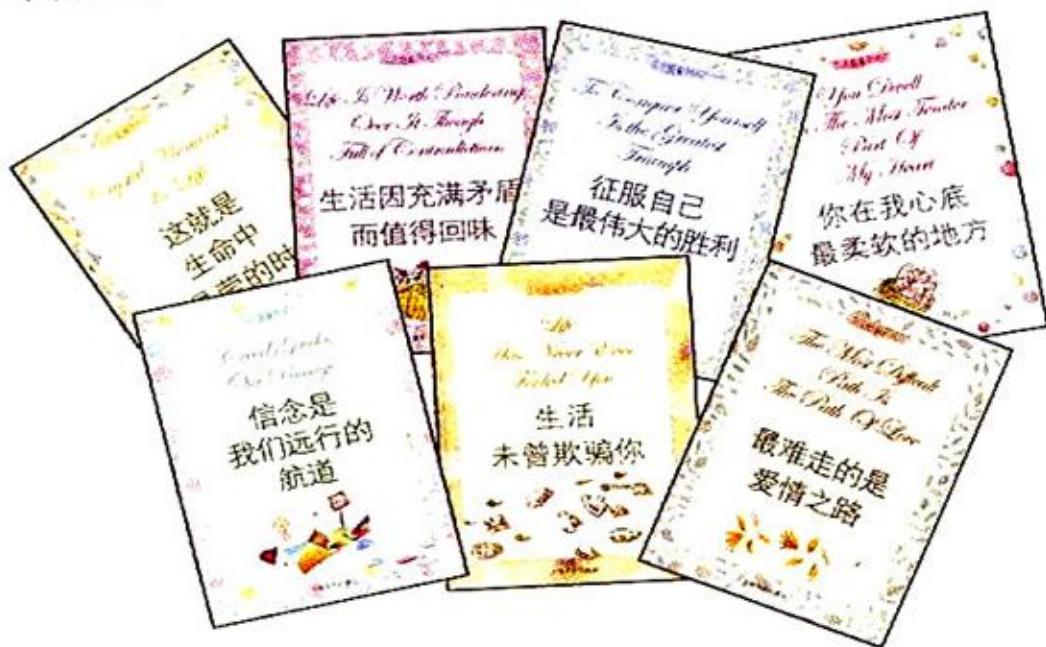 这就是
生命中
的时
Life Is Worth Pondering
Over It Though
Full of Contradictions
生活因充满矛盾
而值得回味
To Conquer Yourself
Is the Greatest
Triumph
征服自己
是最伟大的胜利
You Dwell
The Most Tender
Part Of
My Heart
你在我心底
最柔软的地方
信念是
我们远行的
航道
Life
Has Never Ever
Fooled You
生活
未曾欺骗你
The Most Difficult
Path Is
The Path Of Love
最难走的是
爱情之路